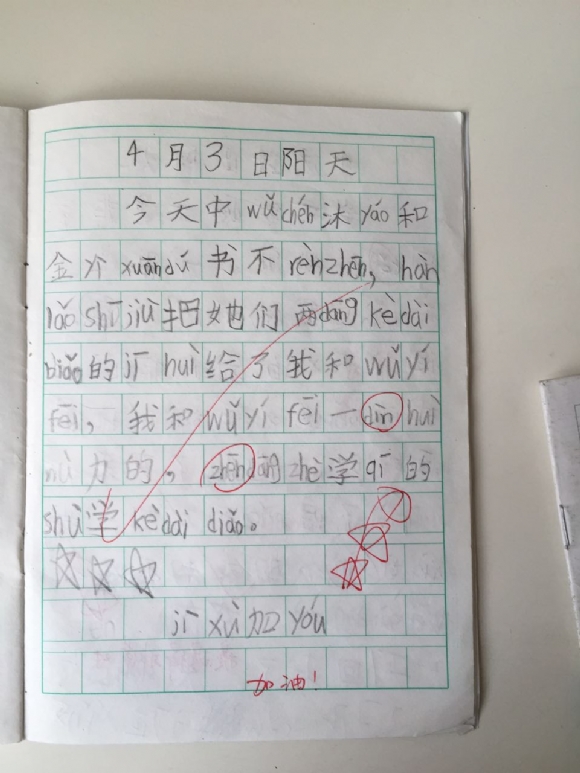 4月3日阳天
今天中wǔ chén沐yáo和
金亇xuān dú书不rèn zhēn，hàn
lǎo shī jiù把她们两dāng kè dài
biǎo的jī huì给了我和wǔ yí
fēi，我和wǔ yí fēi一dìn huì
nǔ力的，zhēn dāng zhè学qī的
shù学kè dài diǎo。
jì xù加yóu
加油！